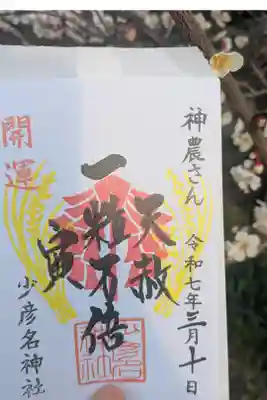 神農さん 令和七年三月十日
天赦
一粒万倍
寅
少彦名神社
開運